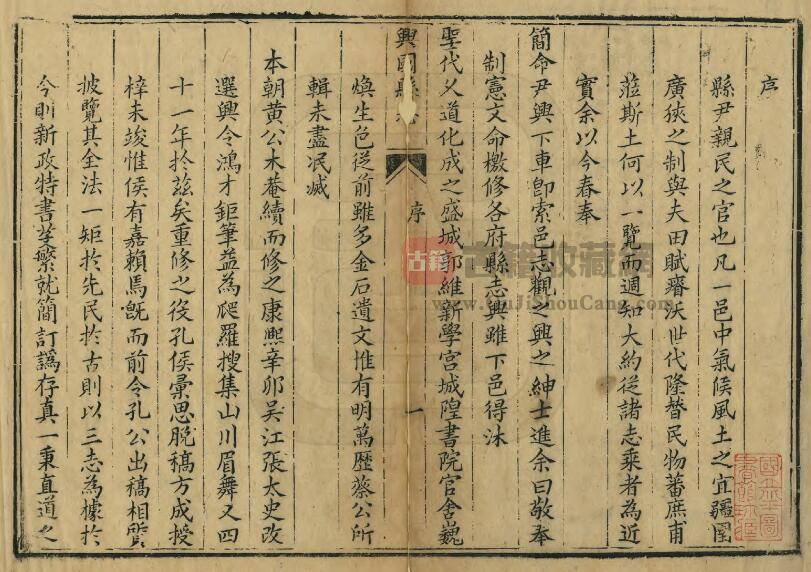 序
縣尹親民之官也凡一邑中氣候風土之宜疆圉
廣狹之制與夫田賦瘠沃世代隆替民物蕃庶甫
蒞斯土何以一覽而週知大約從諸志乘者為近
實余以今春奉
簡命尹興下車卽索邑志觀之興之紳士進余曰敬奉
制憲文命檄修各府縣志興雖下邑得沐
聖代久道化成之盛城郭維新學宮城隍書院官舍巍
興國縣 序 一
煥生色從前雖多金石遺文惟有明萬歷蔡公所
輯未盡泯滅
本朝黃公木菴續而修之康熙辛卯吴江張太史改
選興令鴻才鉅筆益為爬羅搜集山川眉舞又四
十一年於茲矣重修之役孔侯彙思脫稿方成授
梓未竣惟侯有嘉賴焉旣而前令孔公出稿相質
披覽其全法一矩於先民於古則以三志為據於
今則新政特書芟繁就簡訂譌存真一秉直道之
古籍收藏網
www.GuJiShouCang.com